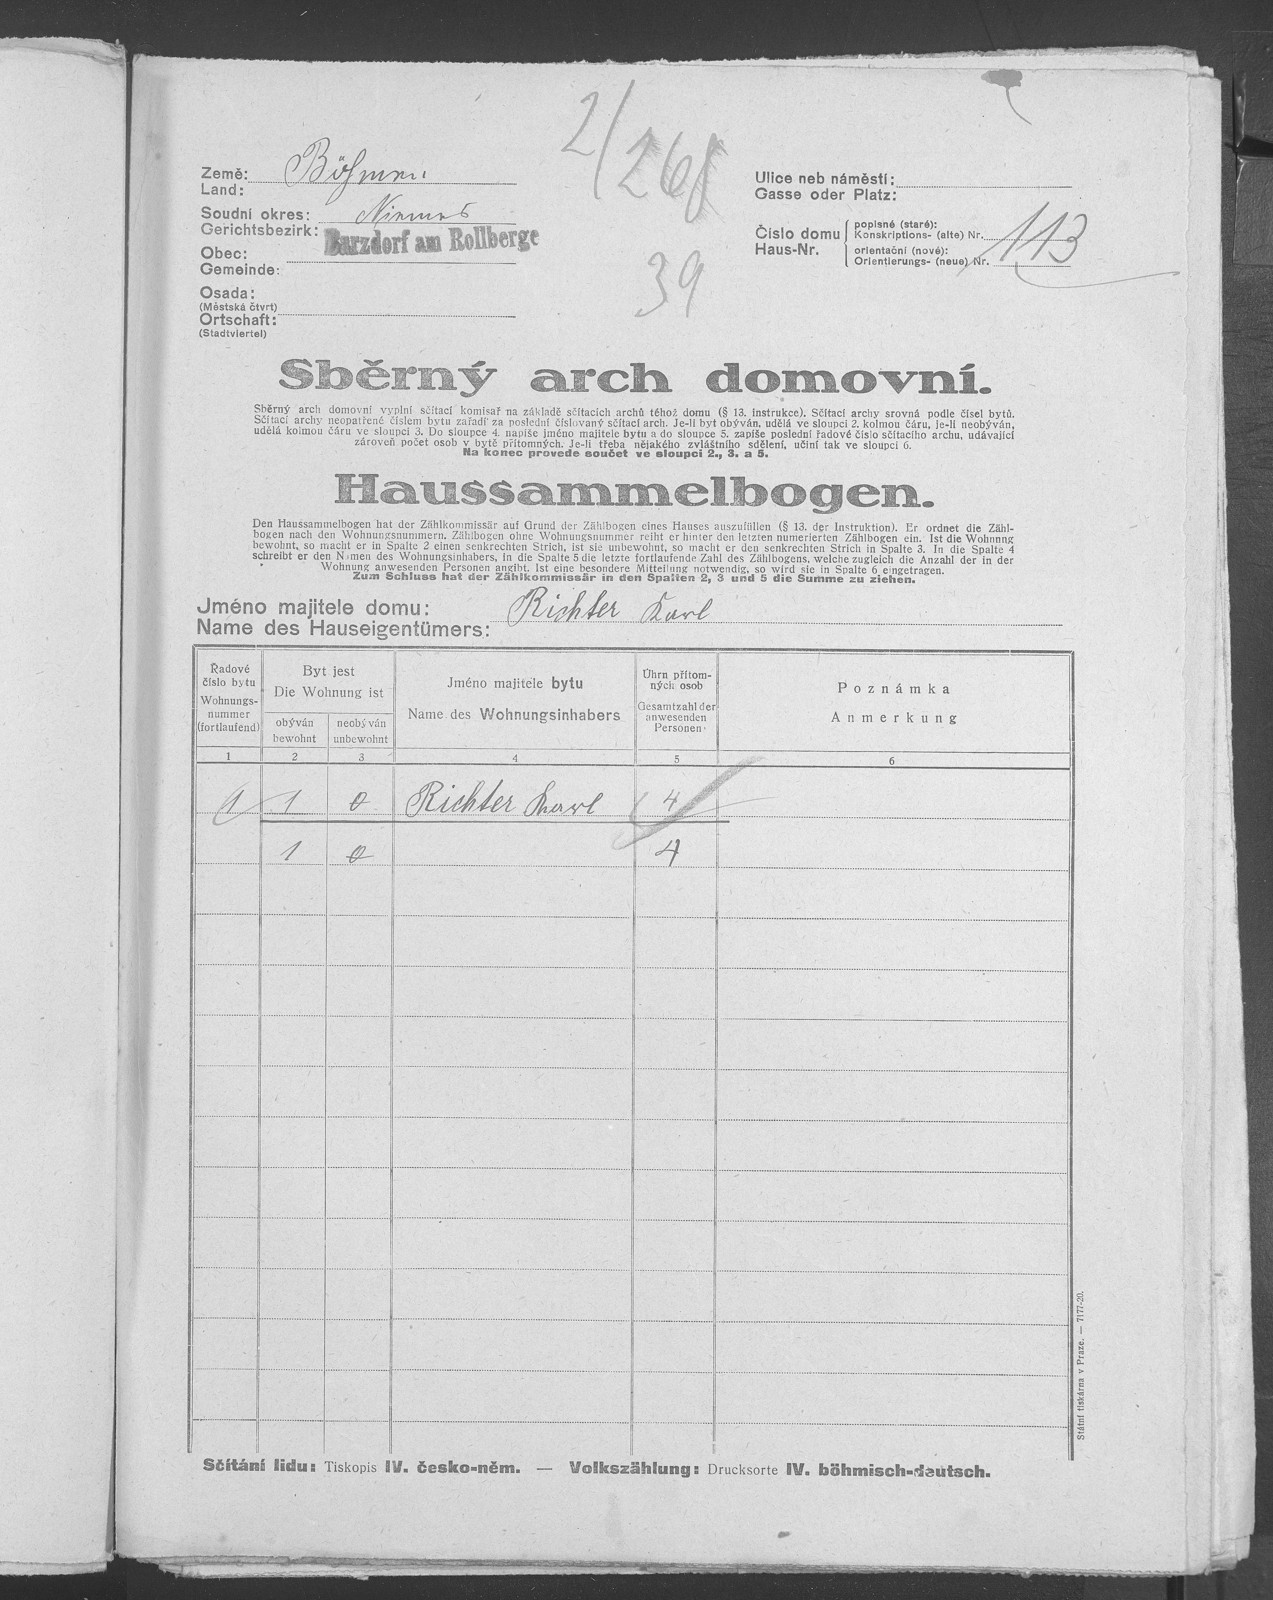 2/268
39
Země: Böhmen
Land:
Soudní okres: Niemes
Gerichtsbezirk:
Barzdorf am Rollberge
Obec:
Gemeinde:
Osada:
(Městská čtvrt)
Ortschaft:
(Stadtviertel)
Ulice neb náměstí:
Gasse oder Platz:
Číslo domu
Haus-Nr.
popisné (staré):
Konskriptions- (alte) Nr.
orientační (nové):
Orientierungs- (neue) Nr.
113
Sběrný arch domovní.
Sběrný arch domovní vyplní sčítací komisař na základě sčítacích archů téhož domu (§ 13. instrukce). Sčítací archy srovná podle čísel bytů.
Sčítací archy neopatřené číslem bytu zařadí za poslední číslovaný sčítací arch. Je-li byt obýván, udělá ve sloupci 2. kolmou čáru, je-li neobýván,
udělá kolmou čáru ve sloupci 3. Do sloupce 4. napíše jméno majitele bytu a do sloupce 5. zapíše poslední řadové číslo sčítacího archu, udávající
zároveň počet osob v bytě přítomných. Je-li třeba nějakého zvláštního sdělení, učiní tak ve sloupci 6.
Na konec provede součet ve sloupci 2., 3. a 5.
Haussammelbogen.
Den Haussammelbogen hat der Zählkommissär auf Grund der Zählbogen eines Hauses auszufüllen (§ 13. der Instruktion). Er ordnet die Zähl-
bogen nach den Wohnungsnummern. Zählbogen ohne Wohnungsnummer reiht er hinter den letzten numerierten Zählbogen ein. Ist die Wohnung
bewohnt, so macht er in Spalte 2 einen senkrechten Strich, ist sie unbewohnt, so macht er den senkrechten Strich in Spalte 3. In die Spalte 4
schreibt er den Namen des Wohnungsinhabers, in die Spalte 5 die letzte fortlaufende Zahl des Zählbogens, welche zugleich die Anzahl der in der
Wohnung anwesenden Personen angibt. Ist eine besondere Mitteilung notwendig, so wird sie in Spalte 6 eingetragen.
Zum Schluss hat der Zählkommissär in den Spalten 2, 3 und 5 die Summe zu ziehen.
Jméno majitele domu: Richter Karl
Name des Hauseigentümers:
Řadové
číslo bytu
Wohnungs-
nummer
(fortlaufend)
Byt jest
Die Wohnung ist
obýván
bewohnt
neobýván
unbewohnt
Jméno majitele bytu
Name des Wohnungsinhabers
Úhrn přítom-
ných osob
Gesamtzahl der
anwesenden
Personen
Poznámka
Anmerkung
1 2 3 4 5 6
1 1 0 Richter Karl 4
1 0 4
Státní tiskárna v Praze. — 7177-20.
Sčítání lidu: Tiskopis IV. česko-něm. — Volkszählung: Drucksorte IV. böhmisch-deutsch.